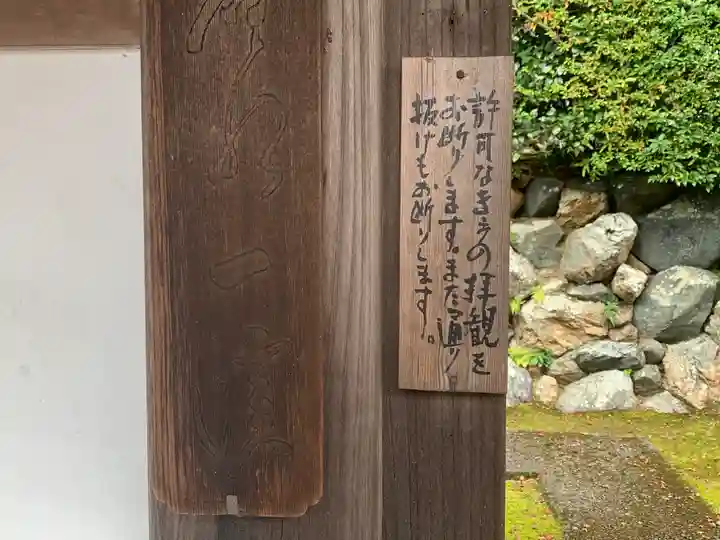 許可なき方の拝観を
お断りします。また通り
抜けもお断りします。
一